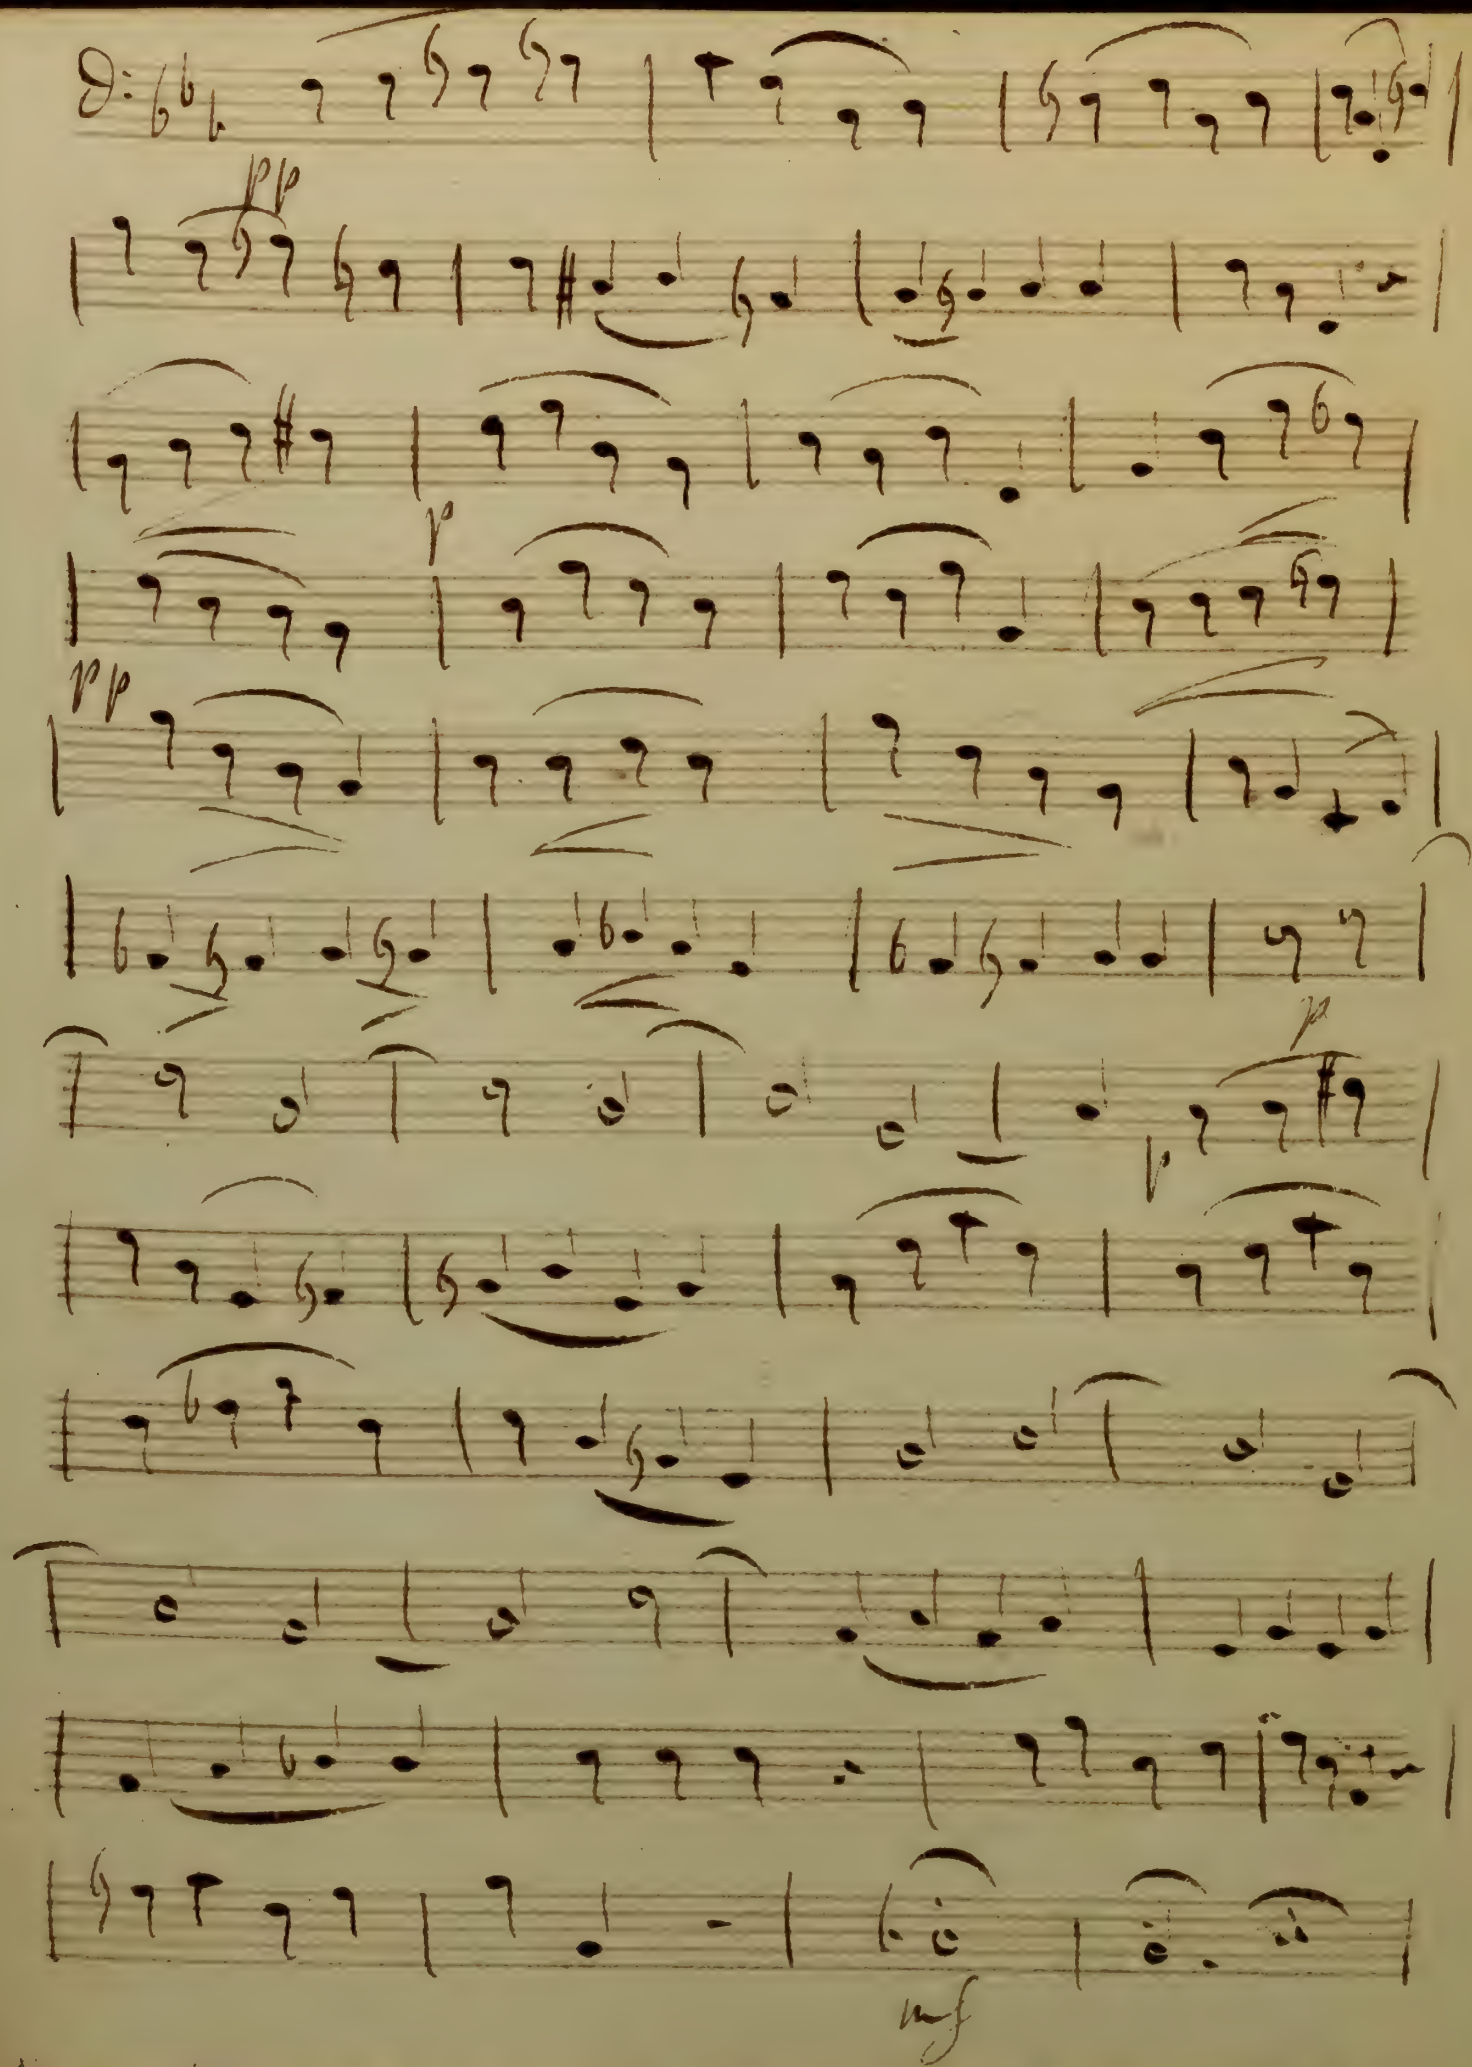 pp
p
pp
p
p
mf